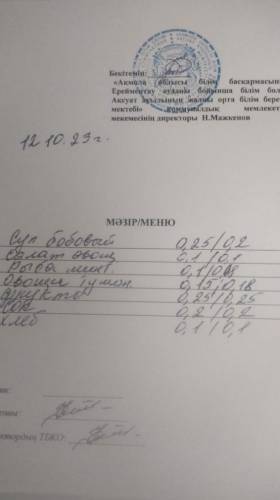 Бекітемін:
«Ақмола облысы білім басқармасының
Ерейментау ауданы бойынша білім бөл
Ақсуат ауылының жалпы орта білім бере
мектебі» коммуналдық мемлекет
мекемесінің директоры Н.Мажкенов
12.10.23 г.
МӘЗІР/MENU
Суп бобовый 0,25/0,2
Салат овощ 0,1/0,1
Рыба мint. 0,1/0,08
Овощи тушон. 0,15/0,18
фрукты 0,25/0,25
Сок 0,2/0,2
хлеб 0,1/0,1